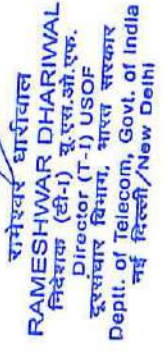 रामेश्वर धारीवाल
RAMESHWAR DHARIWAL
निदेशक (टी-I) यू.एस.ओ.एफ.
Director (T-I) USOF
दूरसंचार विभाग, भारत सरकार
Deptt. of Telecom, Govt. of India
नई दिल्ली/New Delhi